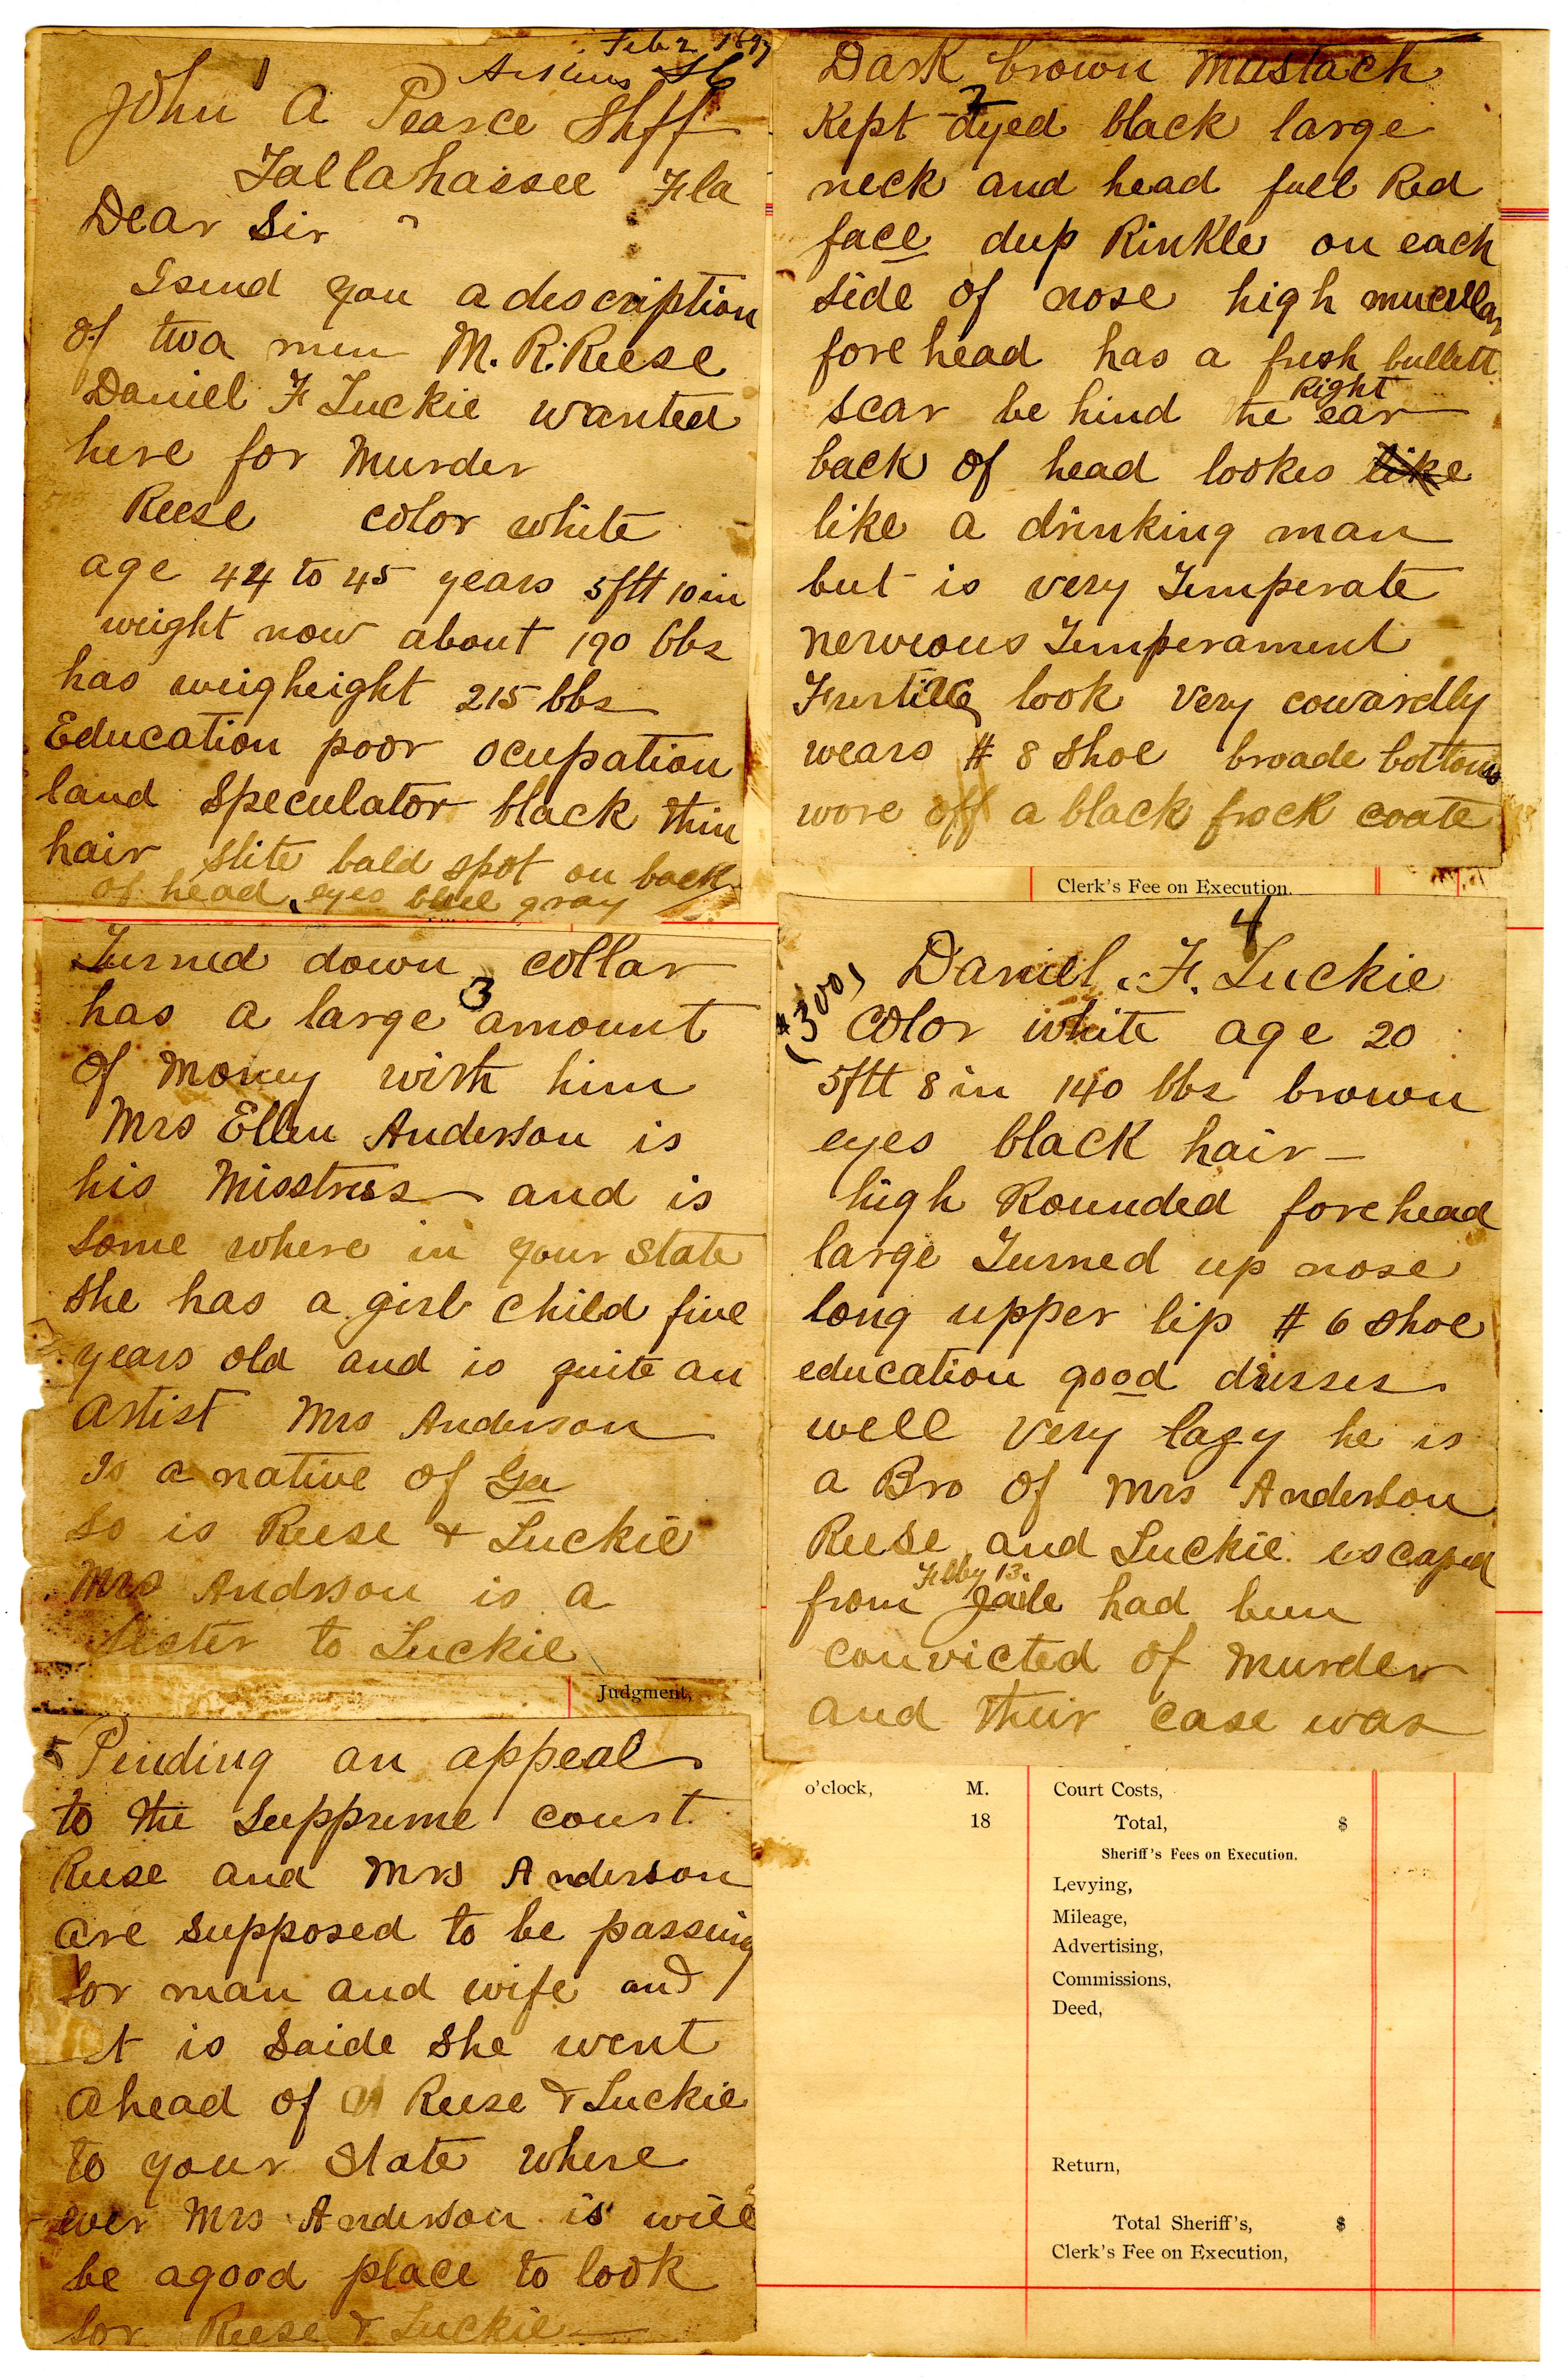 Feb 2 1897
1
John A Pearce Shff
Tallahassee Fla
Dear Sir
I send you a description
of two men M. R. Reese
Daniel F Luckie wanted
here for Murder
Reese color white
age 44 to 45 years 5ftt 10 in
weight now about 190 lbs
has weigheight 215 lbs
Education poor ocupation
land Speculator black thin
hair slite bald spot on back
of head eyes blue gray
Dark brown Mustach
2
Kept dyed black large
neck and head full Red
face deep Rinkle on each
side of nose high
forehead has a fresh bullett
Right
scar be hind the ear
back of head lookes like
like a drinking man
but is very Temperate
nervious Temperament
look very cowardly
wears # 8 shoe broade bottoms
wore off a black frock coate
Clerk's Fee on Execution.
Turned down collar
3
has a large amount
of money with him
Mrs Ellen Anderson is
his Misstress and is
some where in your state
she has a girl child five
years old and is quite an
artist Mrs Anderson
Is a native of Ga
so is Reese + Luckie
Mrs Andrson is a
sister to Luckie
Judgment,
4
($300) Daniel F. Luckie
color white age 20
5ftt 8 in 140 lbs brown
eyes black hair —
high Rounded forehead
large Turned up nose
long upper lip # 6 shoe
education good dresses
well very lazy he is
a Bro of Mrs Anderson
Reese and Luckie escaped
Feby 13.
from Jaile had been
convicted of Murder
and their case was
5 Pending an appeal
to the Suppreme court
Reese and Mrs Anderson
are supposed to be passing
for man and wife and
it is saide she went
ahead of Reese & Luckie
to your State where
ever Mrs Anderson is will
be a good place to look
for Reese & Luckie —
o'clock, M.
18
Court Costs,
Total, $
Sheriff's Fees on Execution.
Levying,
Mileage,
Advertising,
Commissions,
Deed,
Return,
Total Sheriff's, $
Clerk's Fee on Execution,